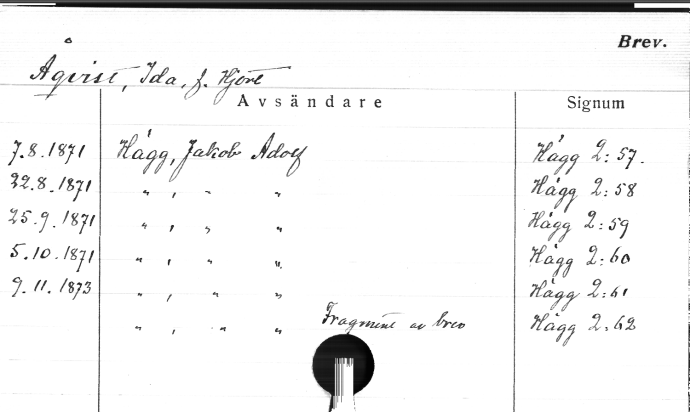 Brev.
Åqvist, Ida, f. Hjort
Avsändare Signum
7.8.1871 Hägg, Jakob Adolf Hägg 2:57.
22.8.1871 " , " " Hägg 2:58
25.9.1871 " , " " Hägg 2:59
5.10.1871 " , " " Hägg 2:60
9.11.1873 " , " " Hägg 2:61
" , " " Fragment av brev Hägg 2:62